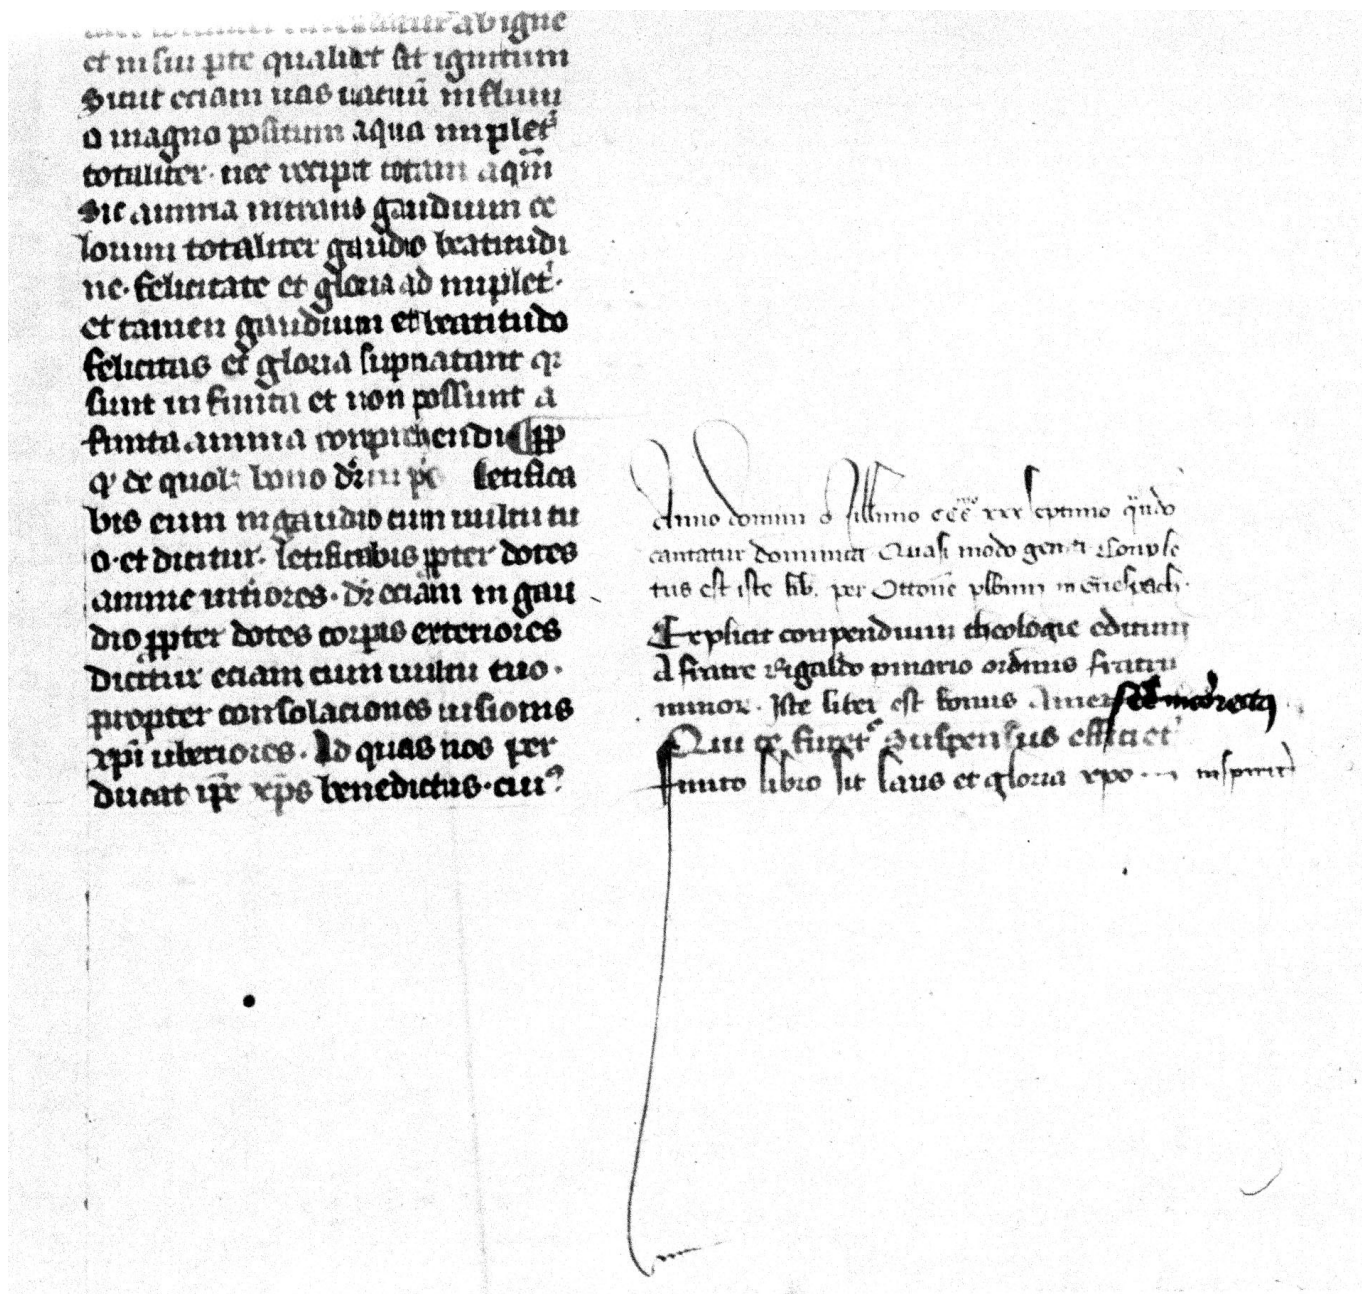 abigne
et in sui pte qualibet sit ignitum
Sicut eciam uas uacuū in fluui
o magno positum aqua implet᷑
totaliter · nec recipit totam aqm̄
Sic anima intrans gaudium ce
lorum totaliter gaudio beatitudi
ne · felicitate et gloria ad implet᷑ ·
et tamen gaudium et beatitudo
felicitas et gloria supnatant qr
sunt infinita et non possunt a
finita anima conprehendi ¶ ꝓp
qʼ de quolꝫ bono dr̄ in pͦ letifica
bis eum in gaudio cum uultu tu
o · et dicitur · letificabis ꝓpter dotes
anime intiores · dr̄ eciam in gau
dio ꝓpter dotes corpis exteriores
dicitur eciam cum uultu tuo ·
propter consolaciones uisionis
xpi uberiores · Ad quas nos per
ducat ip̄e xp̄s benedictus · cuiꝰ
Anno domini Millimo cccc xxx septimo qn̄do
cantatur dominica Quasi modo geniti rſonple
tus est iste lib. per Ottonē plbnm in
Explicit conpendium theologie editum
A fratre Rigaldo ordinis fratrū
minor · Iste liber est bonus Amen
Qui te furet᷑ Suspensus efficiet᷑
Finito libro sit laus et gloria xpo